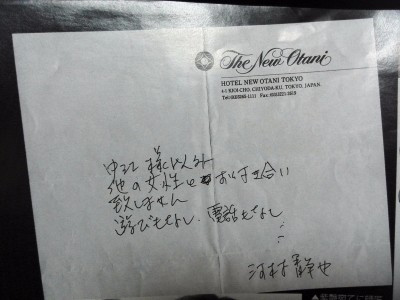 The New Otani
HOTEL NEW OTANI TOKYO
4-1 KIOI-CHO, CHIYODA-KU, TOKYO, JAPAN.
中江 様以外
他の女性とお付き合い
致しません
遊びもなし、電話もなし
河村